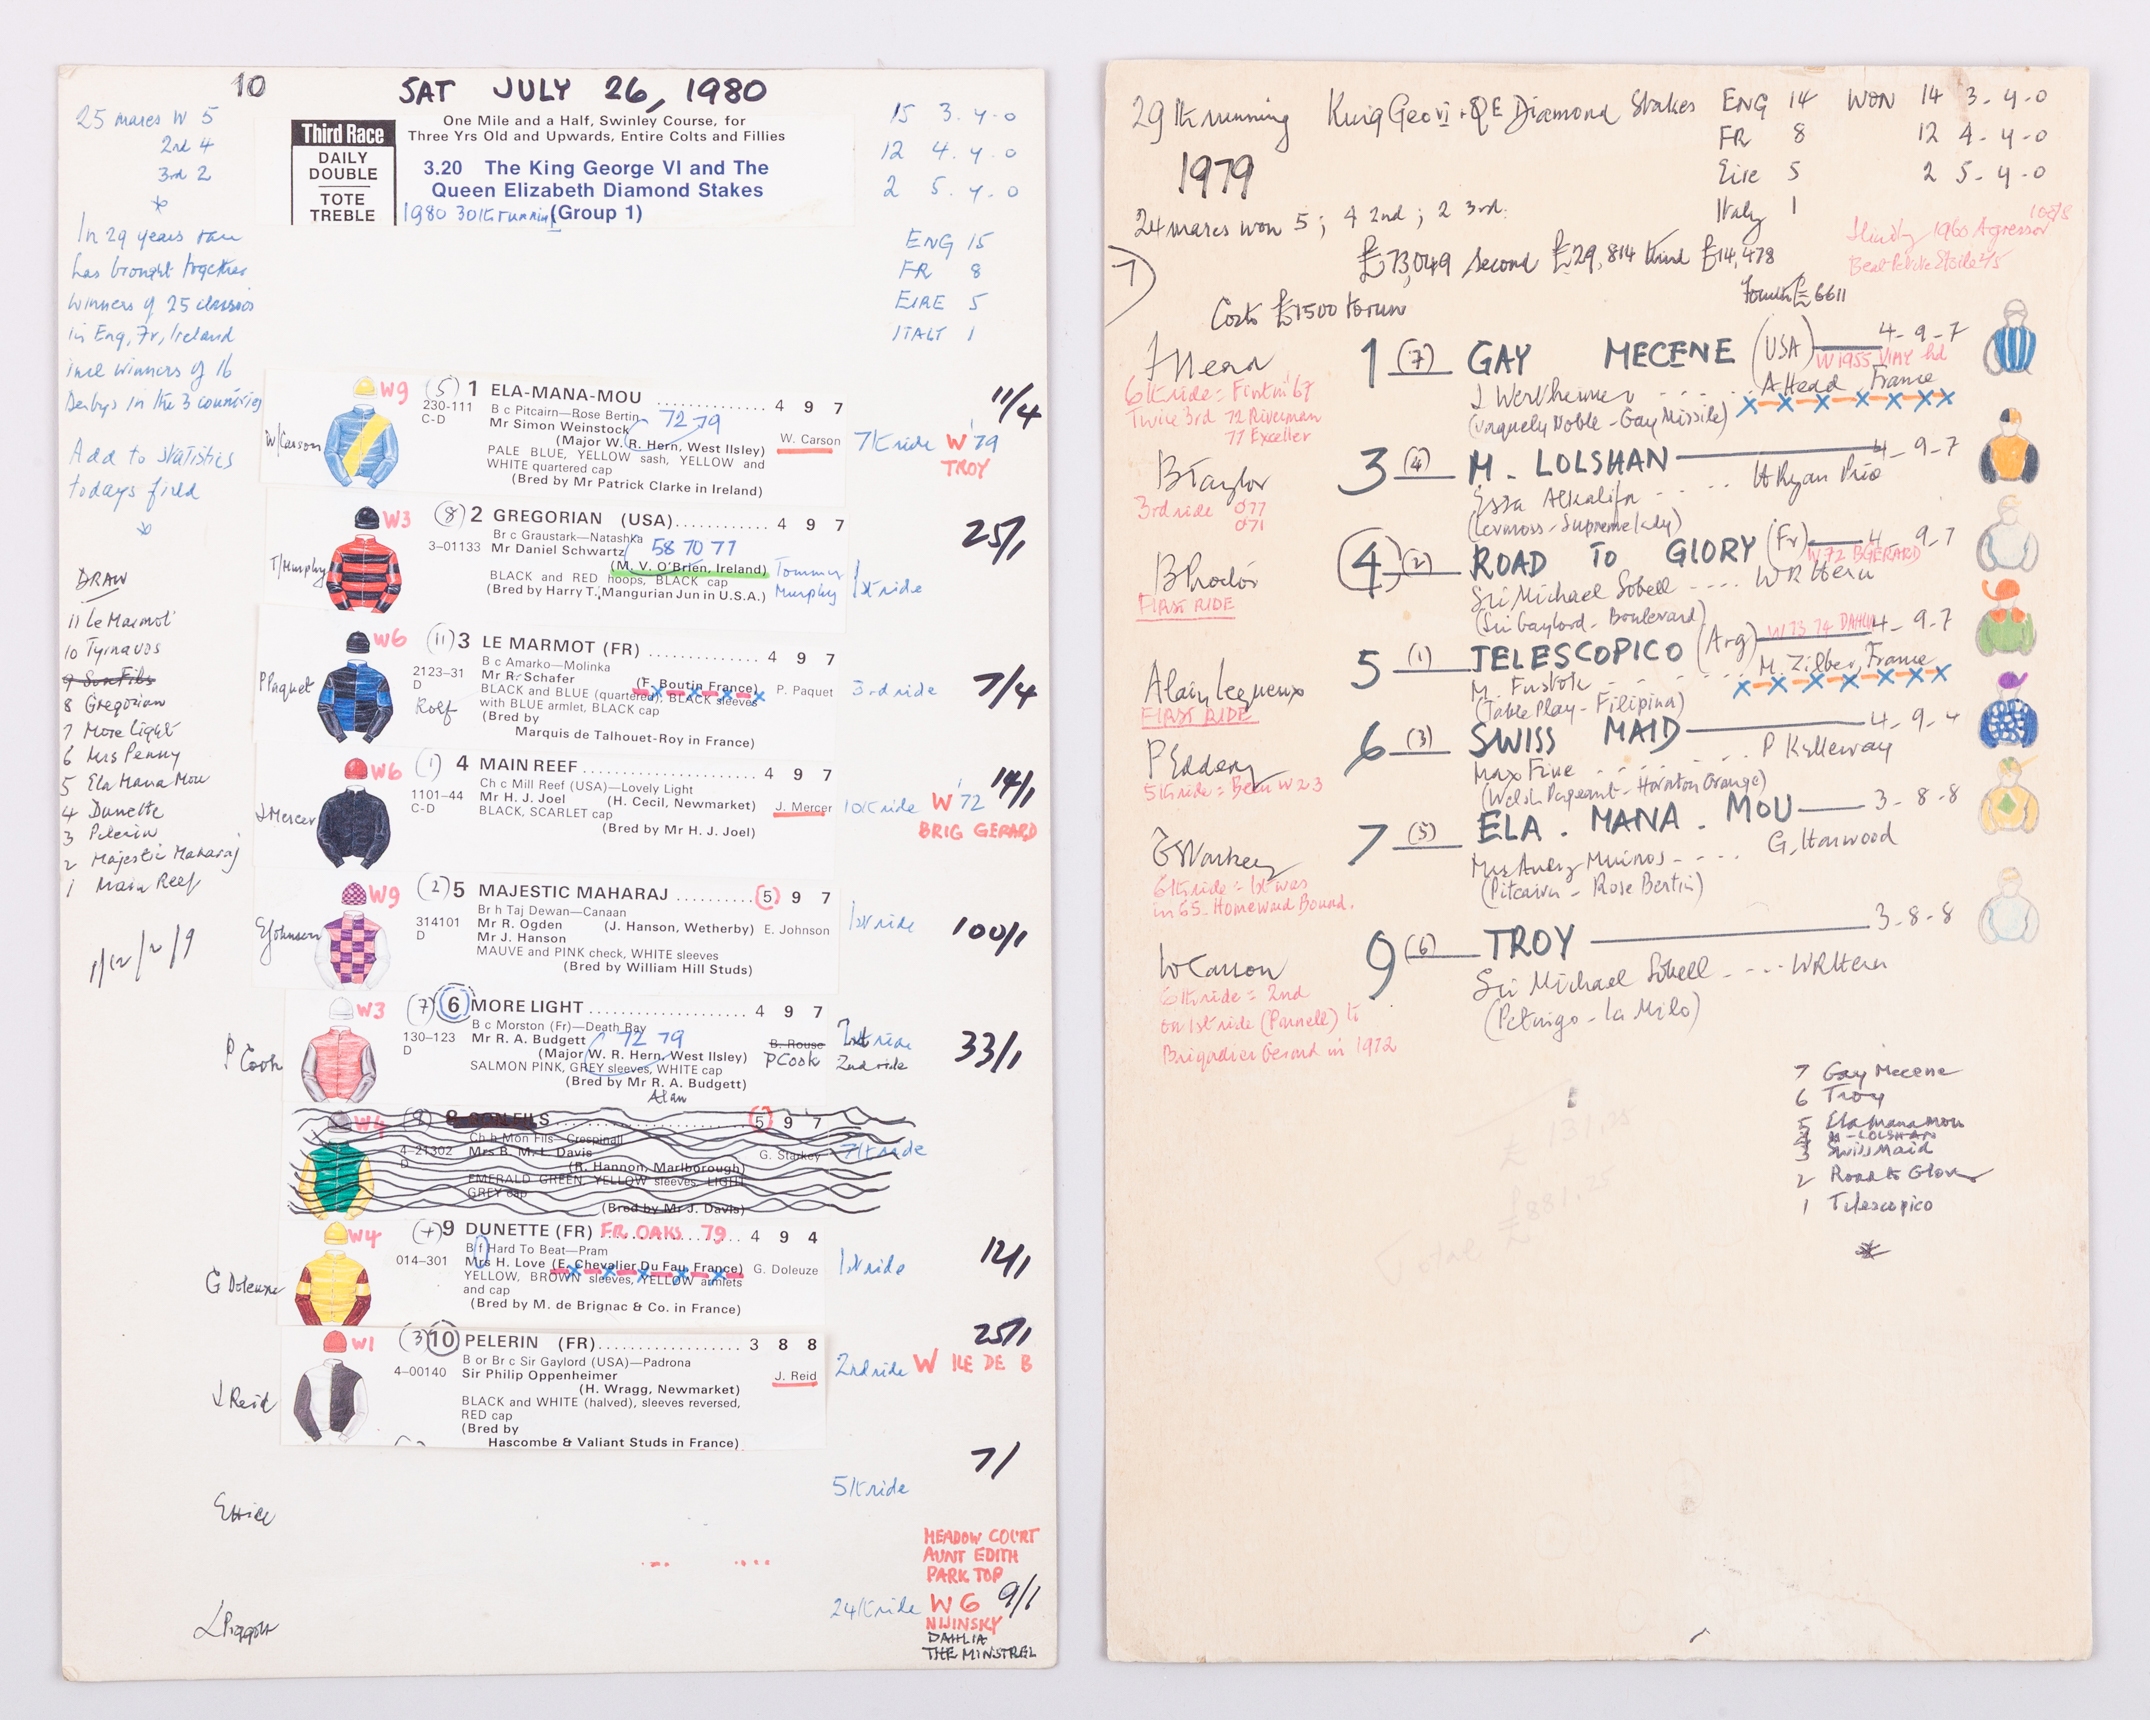 10
SAT JULY 26, 1980
25 mares W 5
2nd 4
3rd 2
In 29 years race
has brought together
winners of 25 classics
in Eng, Fr, Ireland
incl winners of 16
Derbys in the 3 countries
Add to statistics
todays field
DRAW
11 Le Marmot
10 Tyrnavos
9 Son Fils
8 Gregorian
7 More Light
6 Mrs Penny
5 Ela Mana Mou
4 Dunette
3 Pelerin
2 Majestic Maharaj
1 Main Reef
1/12/2/9
Third Race
DAILY
DOUBLE
TOTE
TREBLE
One Mile and a Half, Swinley Course, for
Three Yrs Old and Upwards, Entire Colts and Fillies
3.20 The King George VI and The
Queen Elizabeth Diamond Stakes
1980 30th running (Group 1)
15 3. 4. 0
12 4. 4. 0
2 5. 4. 0
ENG 15
FR 8
EIRE 5
ITALY 1
W/Carson
W9 (5) 1 ELA-MANA-MOU .............. 4 9 7 11/4
230-111 B c Pitcairn—Rose Bertin
C-D Mr Simon Weinstock 72 79
(Major W. R. Hern, West Ilsley) W. Carson 7th ride W '79
TROY
PALE BLUE, YELLOW sash, YELLOW and
WHITE quartered cap
(Bred by Mr Patrick Clarke in Ireland)
T/Murphy
W3 (8) 2 GREGORIAN (USA)............ 4 9 7 25/1
Br c Graustark—Natashka
3–01133 Mr Daniel Schwartz 58 70 77
(M. V. O'Brien, Ireland) Tommy
Murphy 1st ride
BLACK and RED hoops, BLACK cap
(Bred by Harry T. Mangurian Jun in U.S.A.)
P Paquet
W6 (11) 3 LE MARMOT (FR) .............. 4 9 7 7/4
B c Amarko—Molinka
2123–31 Mr R. Schafer
D Rolf
(F. Boutin France) P. Paquet 3rd ride
BLACK and BLUE (quartered), BLACK sleeves
with BLUE armlet, BLACK cap
(Bred by
Marquis de Talhouet-Roy in France)
J Mercer
W6 (1) 4 MAIN REEF ....................... 4 9 7 14/1
Ch c Mill Reef (USA)—Lovely Light
1101–44 Mr H. J. Joel (H. Cecil, Newmarket) J. Mercer 10th ride W '72
C-D BLACK, SCARLET cap BRIG GERARD
(Bred by Mr H. J. Joel)
E Johnson
W9 (2) 5 MAJESTIC MAHARAJ .......... 5 9 7 100/1
Br h Taj Dewan—Canaan
314101 Mr R. Ogden (J. Hanson, Wetherby) E. Johnson 1st ride
D Mr J. Hanson
MAUVE and PINK check, WHITE sleeves
(Bred by William Hill Studs)
P Cook
W3 (7) 6 MORE LIGHT ...................... 4 9 7 33/1
B c Morston (Fr)—Death Ray
130–123 Mr R. A. Budgett 72 79 B. Rouse
D (Major W. R. Hern, West Ilsley) P Cook 2nd ride
SALMON PINK, GREY sleeves, WHITE cap
(Bred by Mr R. A. Budgett)
Alan
W4 (9) 8 SON FILS 5 9 7
Ch h Mon Fils—Crespinall
4–21302 Mrs B. M. L. Davis G. Starkey 7th ride
D (R. Hannon, Marlborough)
EMERALD GREEN, YELLOW sleeves, LIGHT
GREY cap
(Bred by Mr J. Davis)
G Doleuze
W4 (4) 9 DUNETTE (FR) FR. OAKS 79 4 9 4 12/1
B f Hard To Beat—Pram
014–301 Mrs H. Love (E. Chevalier Du Fau, France) G. Doleuze 1st ride
YELLOW, BROWN sleeves, YELLOW armlets
and cap
(Bred by M. de Brignac & Co. in France)
J Reid
W1 (3) 10 PELERIN (FR)...................... 3 8 8 25/1
B or Br c Sir Gaylord (USA)—Padrona
4–00140 Sir Philip Oppenheimer
(H. Wragg, Newmarket) J. Reid 2nd ride W ILE DE B
BLACK and WHITE (halved), sleeves reversed,
RED cap
(Bred by
Hascombe & Valiant Studs in France)
7/
5th ride
E Hide
MEADOW COURT
AUNT EDITH
PARK TOP
L Piggott 24th ride W 6 9/1
NIJINSKY
DAHLIA
THE MINSTREL
29th running King Geo VI + QE Diamond Stakes
1979
ENG 14 WON 14 3. 4. 0
FR 8 12 4. 4. 0
Eire 5 2 5. 4. 0
Italy 1
24 mares won 5; 4 2nd; 2 3rd.
7
£73,049 second £29,814 third £14,478
Fourth £6611
1960 Agressor
Beat Petite Etoile 2/5
Costs £1500 to run
F Head
6th ride = First in '67
Twice 3rd 72 Riverman
77 Exceller
1 (7) GAY MECENE (USA) 4-9-7
W 1955 VIMY hd
J Wertheimer .... A Head France
(Vaguely Noble - Gay Missile)
B Taylor
3rd ride 077
071
3 (4) M. LOLSHAN 4-9-7
Essa Alkalifa .... H Ryan Price
(Levmoss - Supreme Lady)
B Procter
FIRST RIDE
4 (2) ROAD TO GLORY (Fr) 4-9-7
W 72 B GERARD
Sir Michael Sobell .... W R Hern
(Sir Gaylord - Boulevard)
Alain Lequeux
FIRST RIDE
5 (1) TELESCOPICO (Arg) 4-9-7
W 73 74 DAHLIA
M. Fustok .... M. Zilber, France
(Table Play - Filipina)
P Eddery
5th ride = Been W 2 3
6 (3) SWISS MAID 4-9-4
Max Fine .... P Kelleway
(Welsh Pageant - Hornton Grange)
G Starkey
6th ride = 1st was
in 65 Homeward Bound.
7 (5) ELA . MANA . MOU 3-8-8
Mrs Audry Muinos .... G, Harwood
(Pitcairn - Rose Bertin)
W Carson
6th ride = 2nd
on 1st ride (Parnell) to
Brigadier Gerard in 1972
9 (6) TROY 3-8-8
Sir Michael Sobell .... W R Hern
(Petingo - La Milo)
7 Gay Mecene
6 Troy
5 Ela Mana Mou
4 M-LOLSHAN
3 Swiss Maid
2 Road to Glory
1 Telescopico
£ 121.25
£881.25
Total